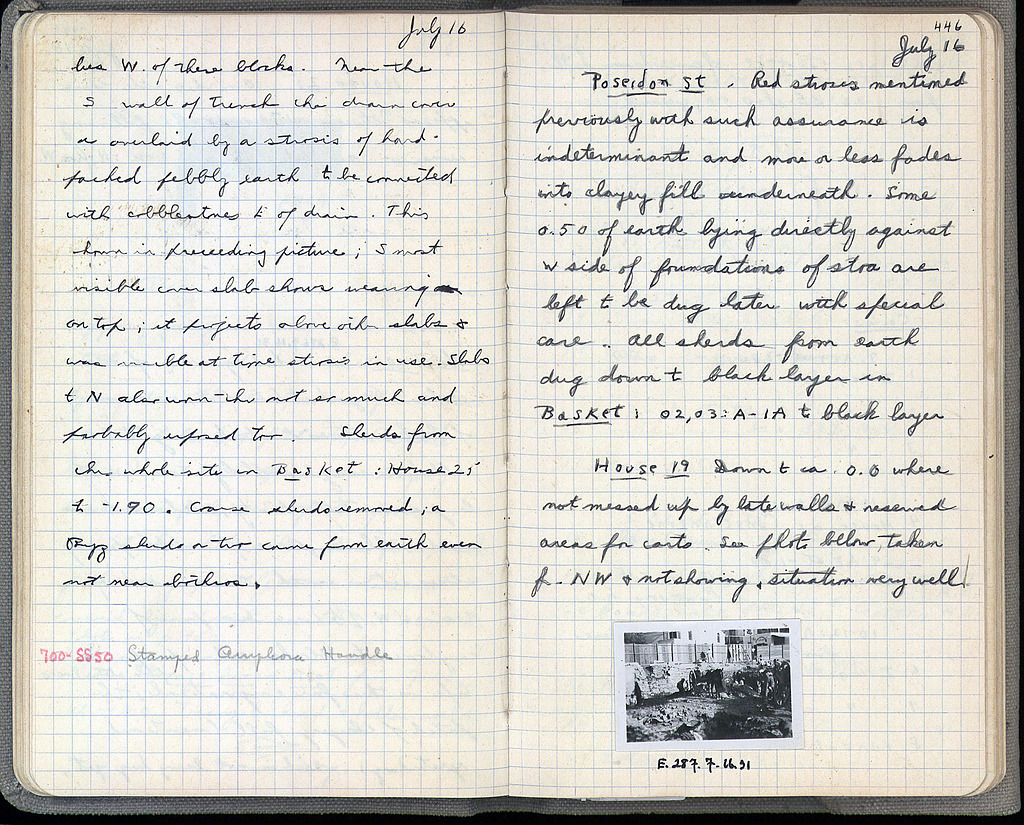 July 16
lies W. of these blocks. Near the
S wall of trench the drain cover
is overlaid by a strosis of hard-
packed pebbly earth to be connected
with cobblestones E of drain. This
shown in preceeding picture; S most
visible cover slab shows wearing
on top; it projects above other slabs &
was visible at time strosis in use. Slabs
to N also worn - the not so much and
probably exposed too. Sherds from
the whole site in Basket: House 25
to -1.90. Coarse sherds removed; a
Byz sherd or two came from earth even
not near bothros.
700-SS50 Stamped Amphora Handle
446
July 16
Poseidon St. Red strosis mentioned
previously with such assurance is
indeterminant and more or less fades
into clayey fill underneath. Some
0.50 of earth lying directly against
W side of foundations of stoa are
left to be dug later with special
care. All sherds from earth
dug down to black layer in
Basket: 02,03:A-1A to black layer
House 19 Down to ca. 0.0 where
not messed up by late walls & reserved
areas for carts. See photo below, taken
f. NW & not showing situation very well!
E. 287. 7.16.31